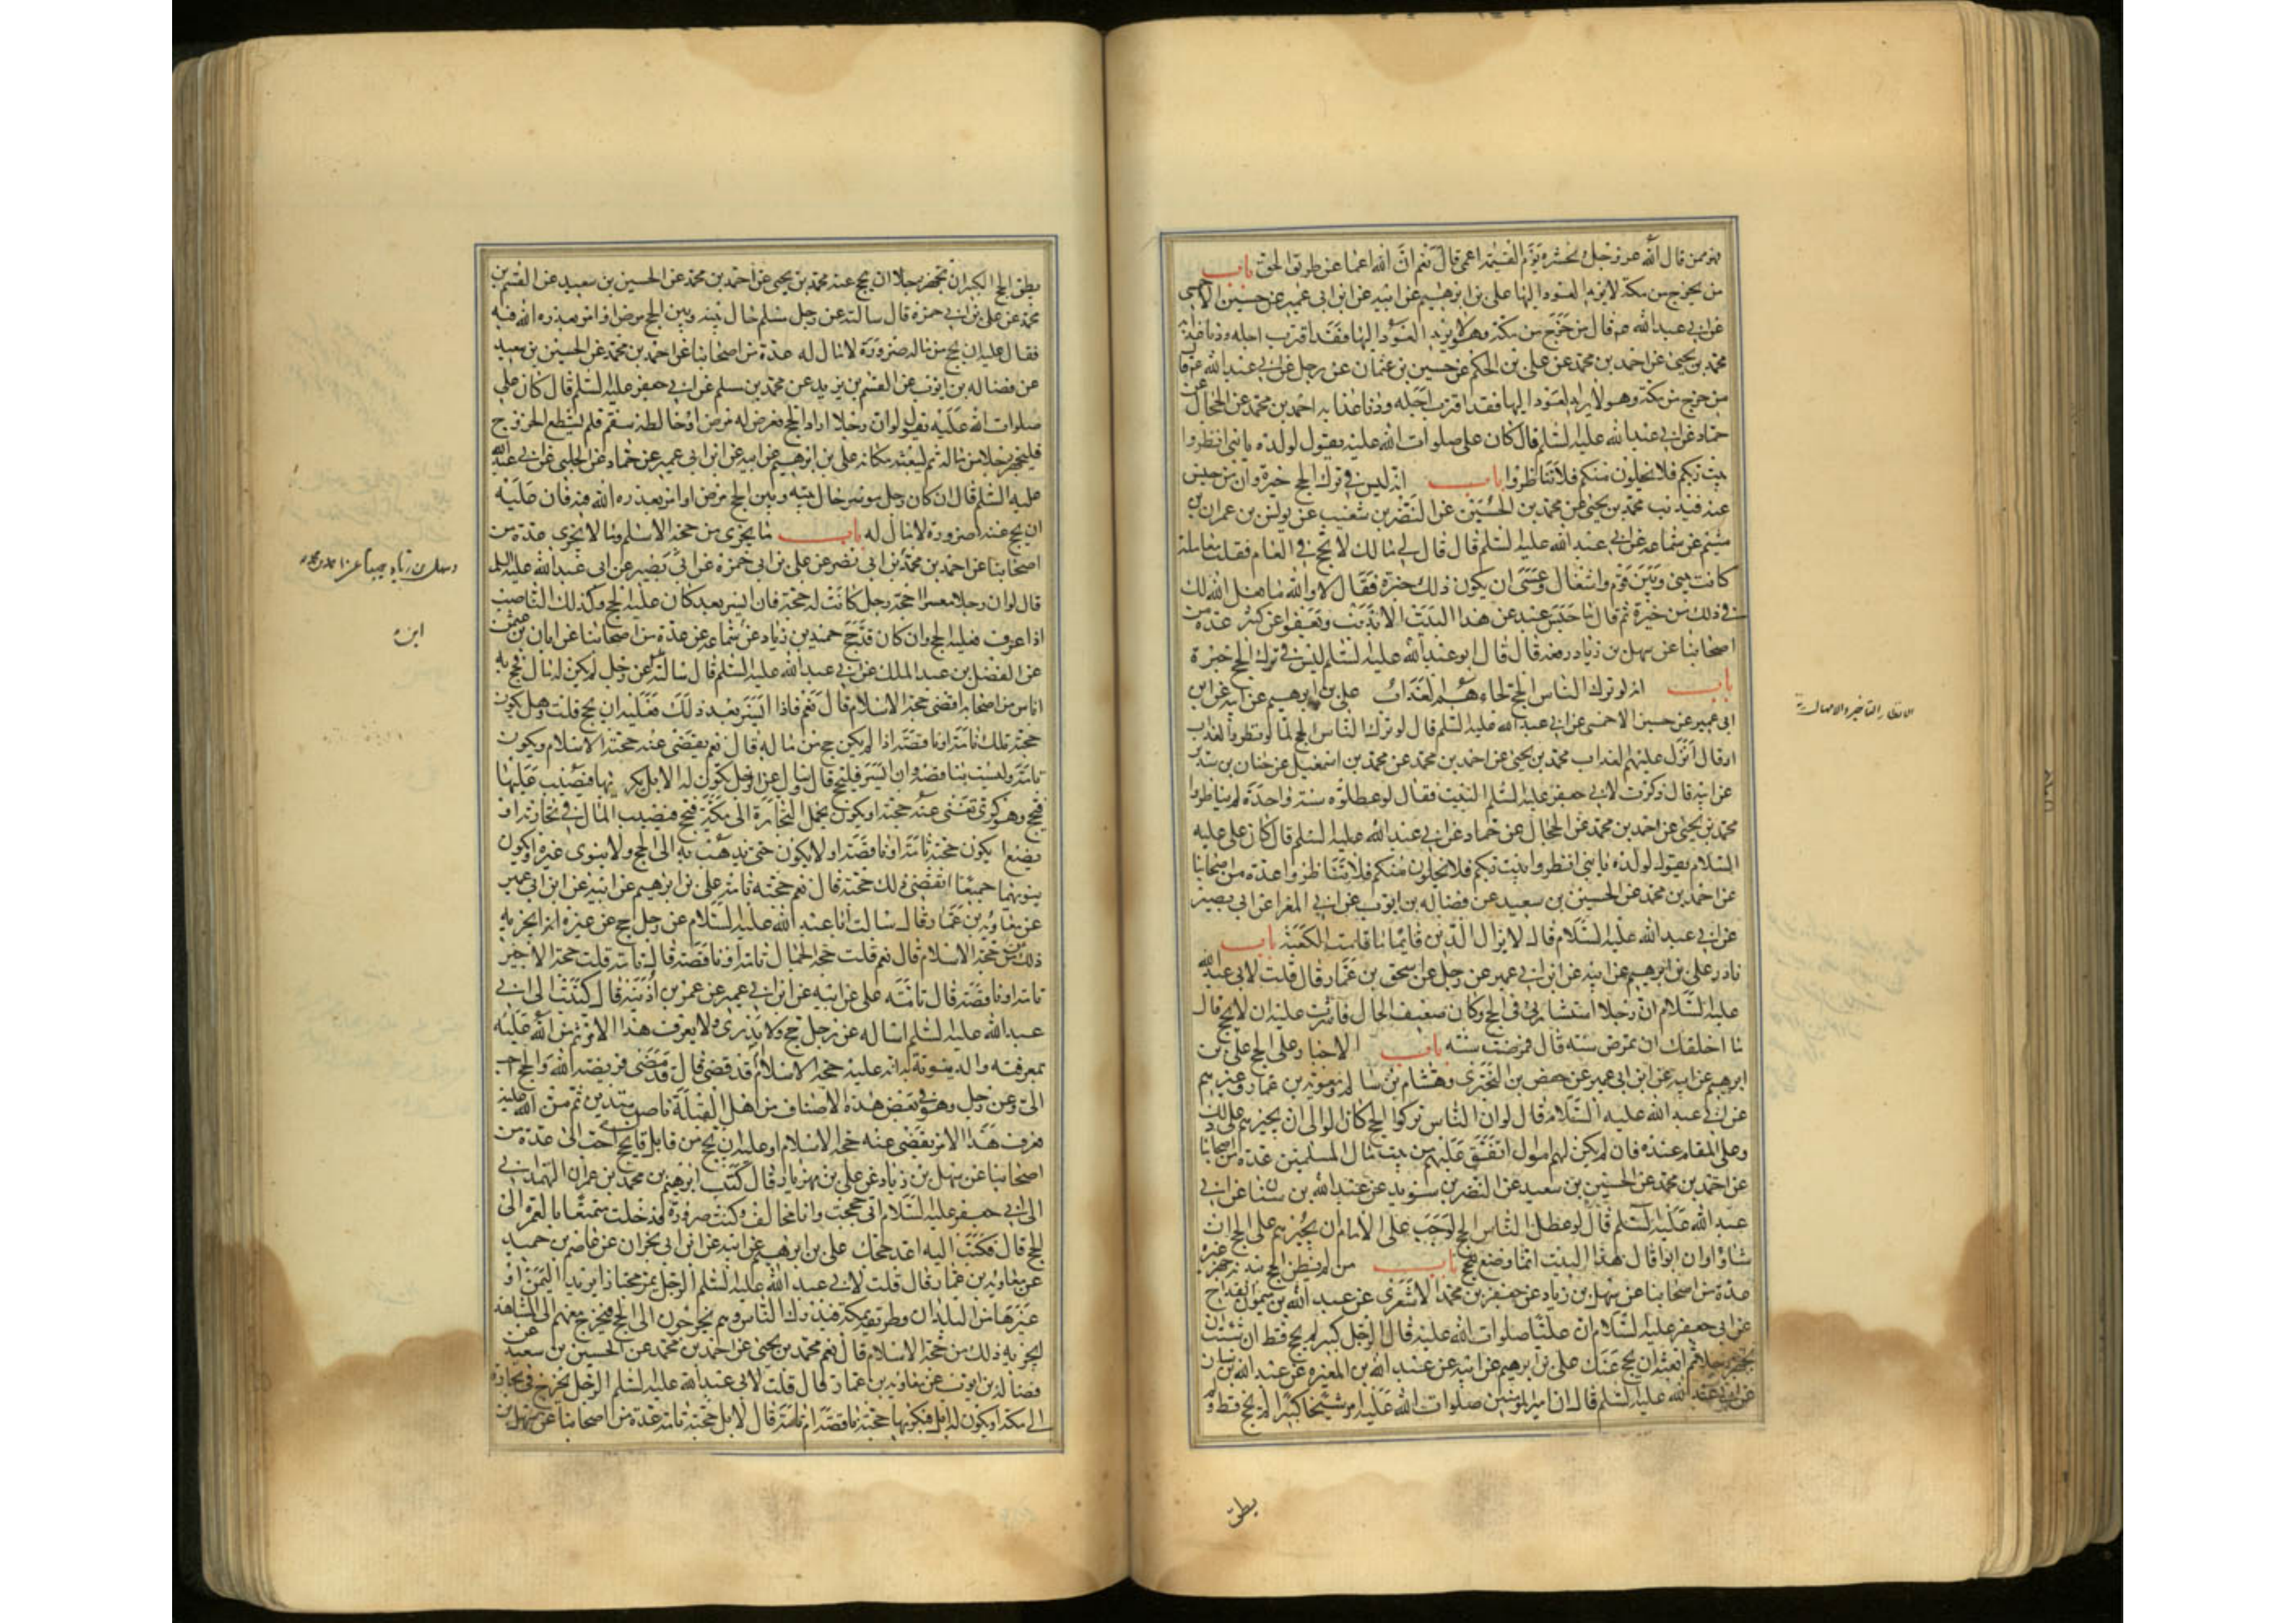 فهو ممن قال الله عز وجل ونحشره يوم القيمة اعمى قال نعم ان الله اعماه عن طريق الحق باب
من يخرج من مكة لا يريد العود اليها على بن ابرهيم عن ابيه عن ابن ابى عمير عن حسين الاحمسى
عن ابى عبد الله ع قال من خرج من مكة وهو لا يريد العود اليها فقد اقترب اجله ودنا عذابه
محمد بن يحيى عن احمد بن محمد عن على بن الحكم عن حسين بن عثمان عن رجل عن ابى عبد الله ع قال
من خرج من مكة وهو لا يريد العود اليها فقد اقترب اجله ودنا عذابه احمد بن محمد عن الحجال عن
حماد عن ابى عبد الله عليه السلم قال كان على صلوات الله عليه يقول لولده يا بنى انظروا
بيت ربكم فلا يخلون منكم فلا تناظروا باب انه ليس فى ترك الحج خيرة وان من حبس
عنه فبذنب محمد بن يحيى عن محمد بن الحسين عن النضر بن شعيب عن يونس بن عمران بن
ميثم عن سماعة عن ابى عبد الله عليه السلم قال قال لى مالك لا تحج فى العام فقلت معاملة
كانت بينى وبين قوم واشغال وعسى ان يكون ذلك خيرة فقال لا والله ما فعل الله لك
فى ذلك من خيرة ثم قال ما حبس عبد عن هذا البيت الا بذنب وما يعفو اكثر عدة من
اصحابنا عن سهل بن زياد رفعه قال قال ابو عبد الله عليه السلم ليس فى ترك الحج خيرة
باب انه لو ترك الناس الحج لجاءهم العذاب على بن ابرهيم عن ابيه عن ابن
ابى عمير عن حسين الاحمسى عن ابى عبد الله عليه السلم قال لو ترك الناس الحج لما نوظروا العذاب
او قال انزل عليهم العذاب محمد بن يحيى عن احمد بن محمد عن محمد بن اسمعيل عن حنان بن سدير
عن ابيه قال ذكرت لابى جعفر عليه السلم البيت فقال لو عطلوه سنة واحدة لم يناظروا
محمد بن يحيى عن احمد بن محمد عن الحجال عن حماد عن ابى عبد الله عليه السلم قال كان على عليه
السلام يقول لولده يا بنى انظروا بيت ربكم فلا يخلون منكم فلا تناظروا عدة من اصحابنا
عن احمد بن محمد عن الحسين بن سعيد عن فضالة بن ايوب عن ابى المغرا عن ابى بصير
عن ابى عبد الله عليه السلام قال لا يزال الدين قائما ما قامت الكعبة باب
نادر على بن ابرهيم عن ابيه عن ابن ابى عمير عن رجل عن اسحق بن عمار قال قلت لابى عبد الله
عليه السلام ان رجلا استشارنى فى الحج وكان ضعيف الحال فاشرت عليه ان لا يحج قال
ما اخلقك ان تمرض سنة قال فمرضت سنة باب الاجبار على الحج على بن
ابرهيم عن ابيه عن ابن ابى عمير عن حفص بن البخترى وهشام بن سالم ومعوية بن عمار وغيرهم
عن ابى عبد الله عليه السلام قال لو ان الناس تركوا الحج لكان على الوالى ان يجبرهم على ذلك
وعلى المقام عنده فان لم يكن لهم اموال انفق عليهم من بيت مال المسلمين عدة من اصحابنا
عن احمد بن محمد عن الحسين بن سعيد عن النضر بن سويد عن عبد الله بن سنان عن ابى
عبد الله عليه السلم قال لو عطل الناس الحج لوجب على الامام ان يجبرهم على الحج ان
شاؤا وان ابوا فان هذا البيت انما وضع للحج باب من لم يطق الحج ببدنه جهز غيره
عدة من اصحابنا عن سهل بن زياد عن جعفر بن محمد الاشعرى عن عبد الله بن ميمون القداح
عن ابى جعفر عليه السلام ان عليا صلوات الله عليه قال لرجل كبير لم يحج قط ان شئت ان
تجهز رجلا ثم ابعثه ان يحج عنك على بن ابرهيم عن ابيه عن عبد الله بن المغيرة عن عبد الله بن سنان
عن ابى عبد الله عليه السلم قال ان امير المومنين صلوات الله عليه امر شيخا كبيرا لم يحج قط ولم
يطق
يطق الحج لكبره ان يجهز رجلا ان يحج عنه محمد بن يحيى عن احمد بن محمد عن الحسين بن سعيد عن القسم بن
محمد عن على بن ابى حمزة قال سالته عن رجل مسلم حال بينه وبين الحج مرض او امر يعذره الله فيه
فقال عليه ان يحج من ماله صرورة لا مال له عدة من اصحابنا عن احمد بن محمد عن الحسين بن سعيد
عن فضالة بن ايوب عن القسم بن بريد عن محمد بن مسلم عن ابى جعفر عليه السلم قال كان على
صلوات الله عليه يقول لو ان رجلا اراد الحج فعرض له مرض او خالطه سقم فلم يستطع الخروج
فليجهز رجلا من ماله ثم ليبعثه مكانه على بن ابرهيم عن ابيه عن ابن ابى عمير عن حماد عن الحلبى عن ابى عبد الله
عليه السلم قال ان كان رجل موسر حال بينه وبين الحج مرض او امر يعذره الله فيه فان عليه
ان يحج عنه صرورة لا مال له باب ما يجزى من حجة الاسلم وما لا يجزى عدة من
اصحابنا عن احمد بن محمد بن ابى نصر عن على بن ابى حمزة عن ابى بصير عن ابى عبد الله عليه السلم
قال لو ان رجلا معسرا احجه رجل كانت له حجة فان ايسر بعد كان عليه الحج وكذلك الناصب
اذا عرف فعليه الحج وان كان قد حج حميد بن زياد عن ابن سماعة عن عدة من اصحابنا عن ابان بن عثمن
عن الفضل بن عبد الملك عن ابى عبد الله عليه السلم قال سالته عن رجل لم يكن له مال فحج به
اناس من اصحابه اقضى حجة الاسلام قال نعم فاذا ايسر بعد ذلك فعليه ان يحج قلت وهل يكون
حجته تلك تامة او ناقصة اذا لم يكن حج من ماله قال نعم يقضى عنه حجة الاسلام ويكون
تامة وليست بناقصة وان ايسر فليحج قال وسئل عن الرجل يكون له الابل يكريها فيصيب عليها
فيحج وهو كرى تغنى عنه حجته او يكون يحمل التجارة الى مكة فيحج فيصيب المال فى تجارته او
يضع ايكون حجته تامة او ناقصة او لا يكون حتى يذهب به الى الحج ولا ينوى غيره او يكون
ينويهما جميعا ايقضى ذلك حجته قال نعم حجته تامة على بن ابرهيم عن ابيه عن ابن ابى عمير
عن معاوية بن عمار قال سالت ابا عبد الله عليه السلام عن رجل حج عن غيره ايجزيه
ذلك من حجة الاسلام قال نعم قلت حجة الجمال تامة او ناقصة قال تامة قلت حجة الاجير
تامة او ناقصة قال تامة على عن ابيه عن ابن ابى عمير عن عمر بن اذينة قال كتبت الى ابى
عبد الله عليه السلم اساله عن رجل حج ولا يدرى ولا يعرف هذا الامر ثم من الله عليه
بمعرفته والدينونة به اعليه حجة الاسلام او قد قضى قال قد قضى فريضة الله والحج احب
الى وعن رجل وهو فى بعض هذه الاصناف من اهل القبلة ناصب متدين ثم من الله عليه
فعرف هذا الامر يقضى عنه حجة الاسلام او عليه ان يحج من قابل قال يحج احب الى عدة من
اصحابنا عن سهل بن زياد عن على بن مهزيار قال كتب ابرهيم بن محمد بن عمران الهمدانى
الى ابى جعفر عليه السلام انى حججت وانا مخالف وكنت صرورة فدخلت متمتعا بالعمرة الى
الحج قال فكتب اليه اعد حجك على بن ابرهيم عن ابيه عن ابن ابى نجران عن عاصم بن حميد
عن معاوية بن عمار قال قلت لابى عبد الله عليه السلم الرجل يمر مجتازا يريد اليمن او
غيرها من البلدان وطريقه بمكة فيدرك الناس وهم يخرجون الى الحج فيخرج معهم الى المشاهد
ايجزيه ذلك من حجة الاسلام قال نعم محمد بن يحيى عن احمد بن محمد عن الحسين بن سعيد عن
فضالة بن ايوب عن معاوية بن عمار قال قلت لابى عبد الله عليه السلم الرجل يخرج فى تجارة
الى مكة او يكون له ابل فيكريها حجته ناقصة ام تامة قال لا بل حجته تامة عدة من اصحابنا عن سهل بن